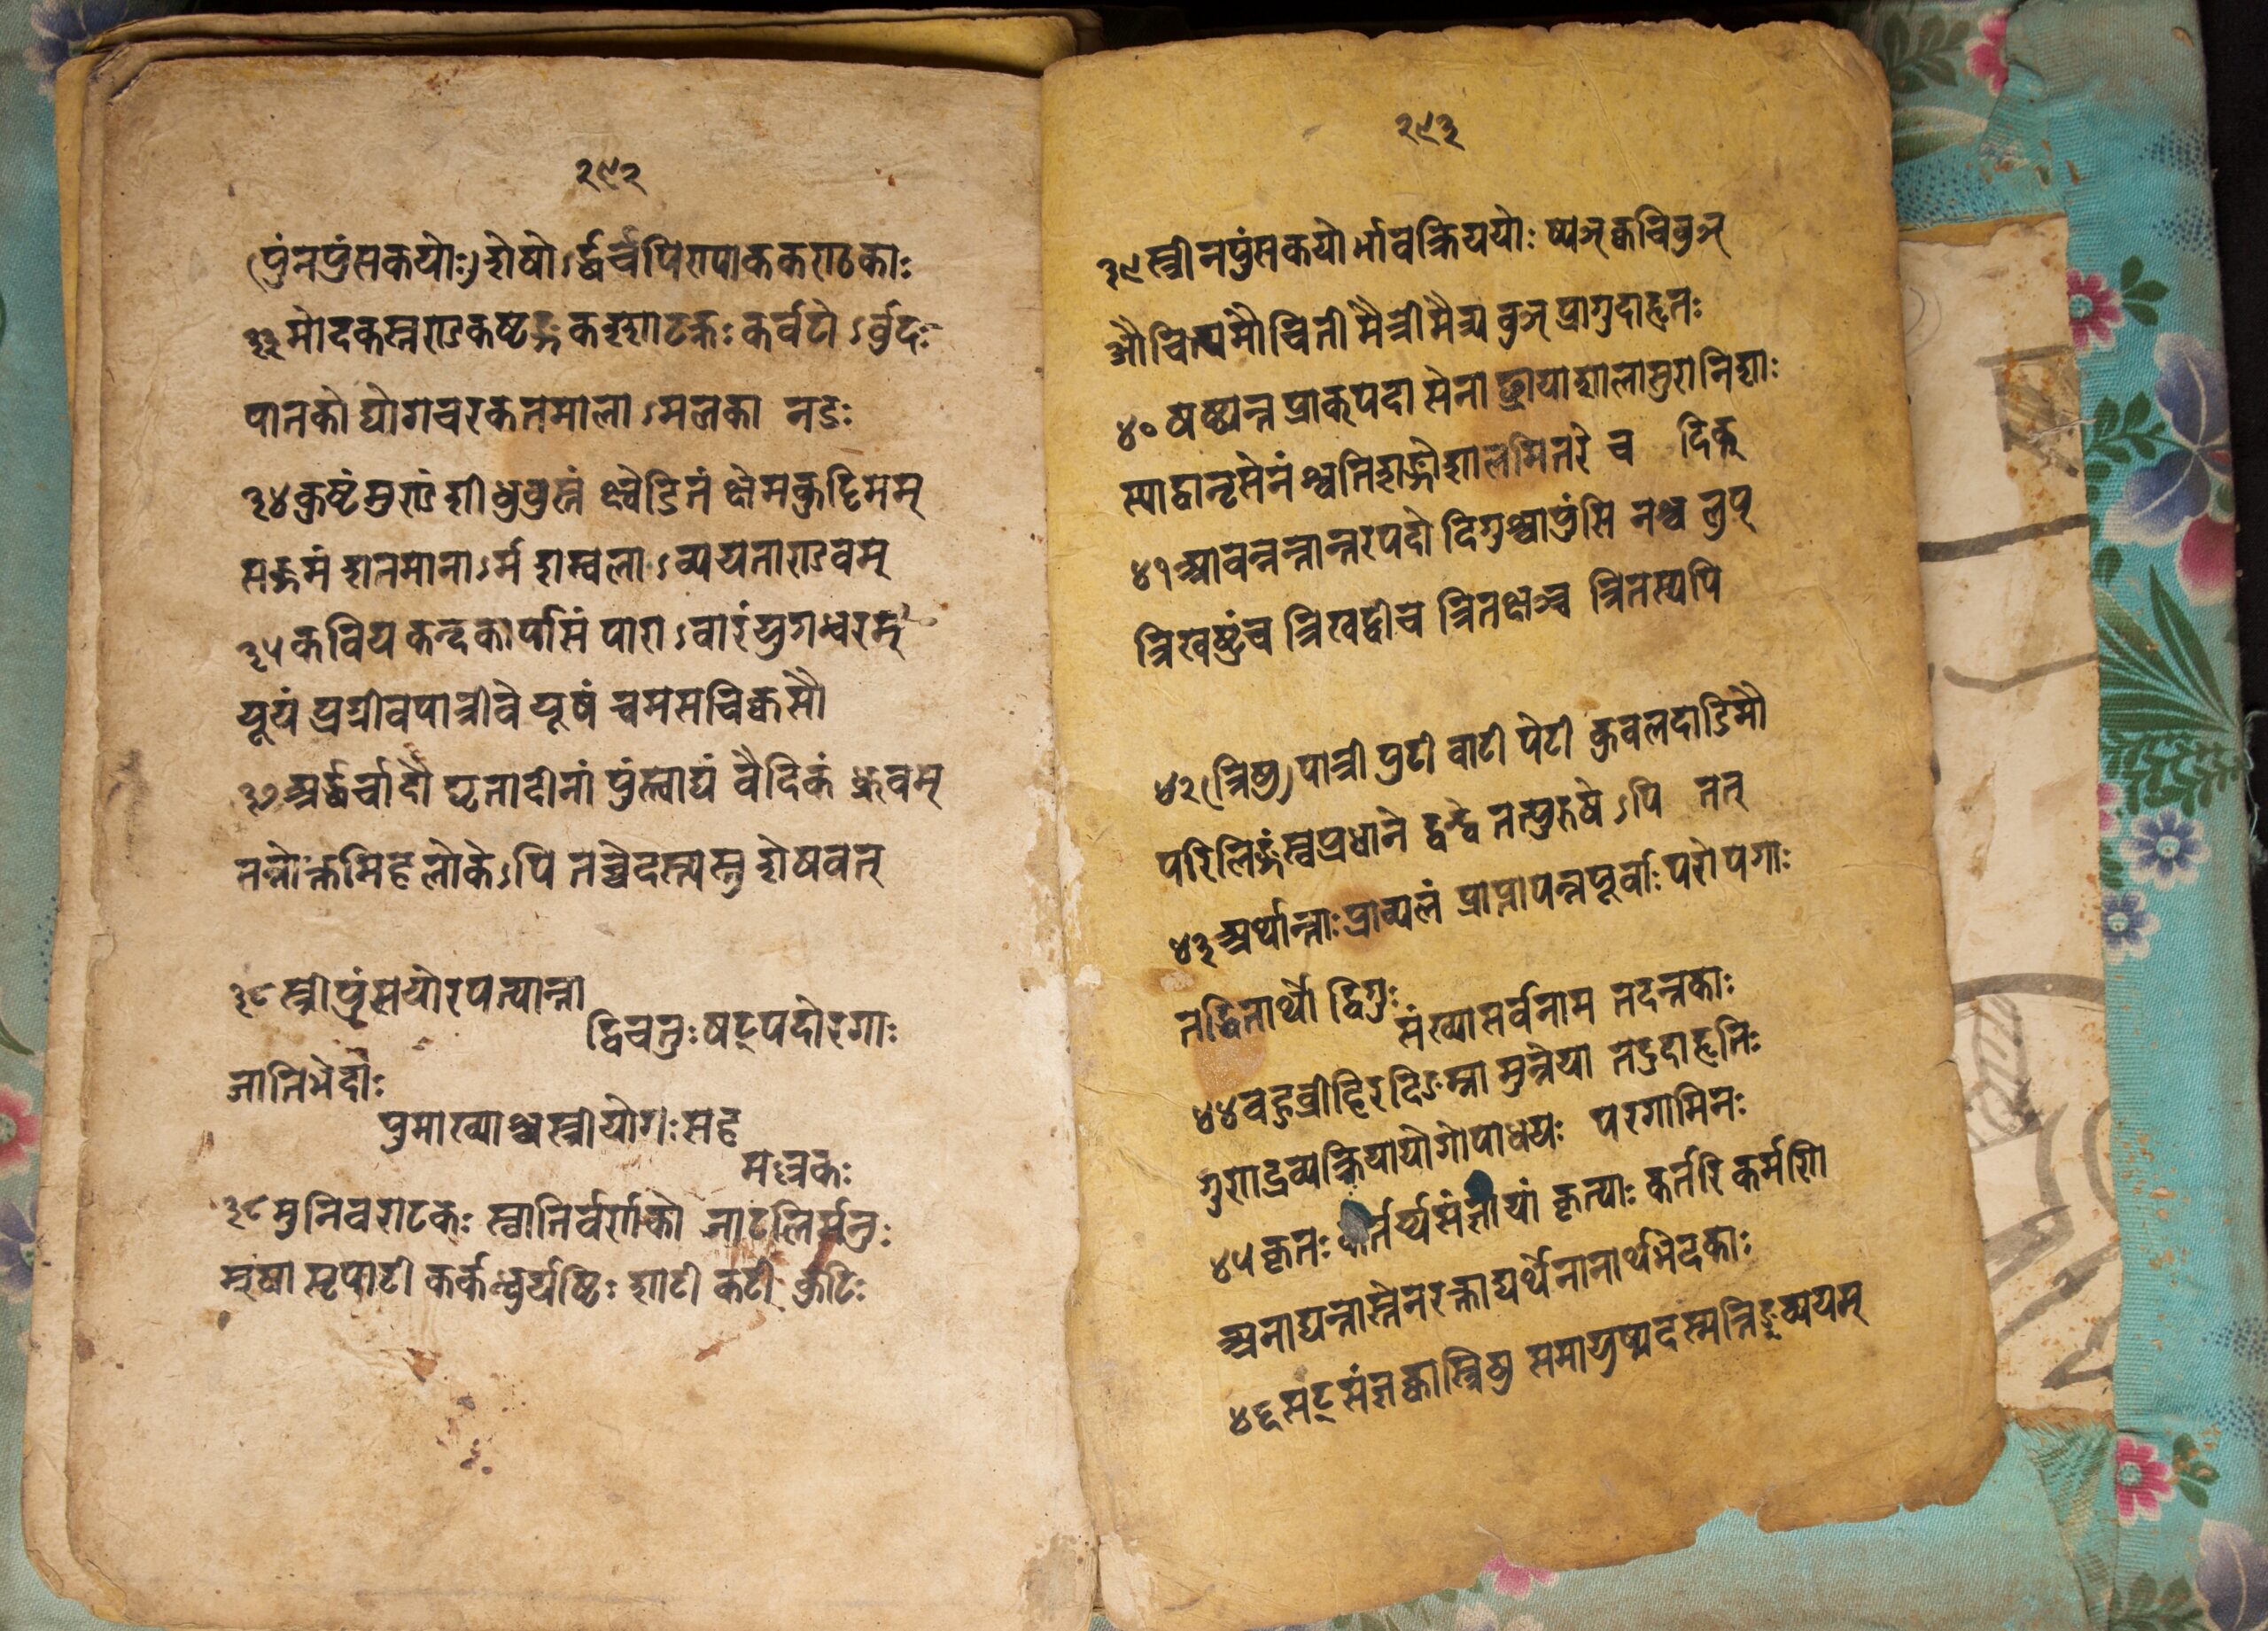 २९२
(पुंनपुंसकयोः) शेषोऽर्द्धर्चपिण्याककण्टकाः
३३ मोदकस्तण्डकष्टङ्कः शाटकः कर्वटोऽर्बुदः
पातकोद्योगचरकतमालाऽमलका नडः
३४ कुष्टं मुण्डं शीधु वुस्तं क्ष्वेडितं क्षेमकुट्टिमम्
सङ्गमं शतमानाऽर्म शम्बलाऽव्ययताण्डवम्
३५ कवियकन्दकार्पासं पाराऽवारं युगन्धरम्
यूपं प्रग्रीवपात्रीवे यूषं चमसचिक्कसौ
३७ अर्द्धर्चादौ घृतादीनां पुंस्त्वाद्यं वैदिकं ध्रुवम्
तन्नोक्तमिह लोकेऽपि तच्चेदस्त्यस्तु शेषवत्
३८ स्त्रीपुंसयोरपत्यान्ता
द्विचतुःषट्पदोरगाः
जातिभेदाः
पुमाख्याश्च स्त्रीयोगः सह
मल्लकः
३८ मुनिवराटकः स्वातिर्वर्णको जाटलिर्मनुः
मूषा सृपाटी कर्कन्धुर्यष्टिः शाटी कटी कुटिः
२९३
३९ स्त्रीनपुंसकयोर्भावक्रिययोः ष्यञ् क्वचिवुञ्
औचित्यमौचिती मैत्री मैत्र्य वुञ् प्रागुदाहृतः
४० षष्ठ्यन्तप्राक्पदा सेनाछायाशालासुरानिशाः
स्याद्वा नृसेनं श्वनिशं गोशालमितरे च दिक्
४१ आबन्नन्तान्तरपदो द्विगुश्चापुंसि नश्च लुप्
त्रिखष्ट्वंच त्रिखट्वी च त्रितक्षञ्च त्रितक्ष्यपि
४२ (त्रिषु) पात्री पुटी वाटी पेटी कुवलदाडिमौ
परलिङ्गं स्वप्रधाने द्वन्द्वे तत्पुरुषेऽपि तत्
४३ अर्थान्ताः प्राद्यलं प्राप्तापन्नपूर्वाः परोपगाः
तद्धितार्थो द्विगुः
संख्यासर्वनाम तदन्तकाः
४४ बहुव्रीहिरदिङ्नाम्ना मुन्नेया तदुदाहृतिः
गुणद्रव्यक्रियायोगोपाधयः परगामिनः
४५ कृतः कर्तर्य्यसंज्ञायां कृत्याः कर्तरि कर्मणि
अणाद्यन्तास्तेन रक्ताद्यर्थे नानार्थभेदकाः
४६ षट्संज्ञकास्त्रिषु समा युष्मदस्मत्तिङव्ययम्